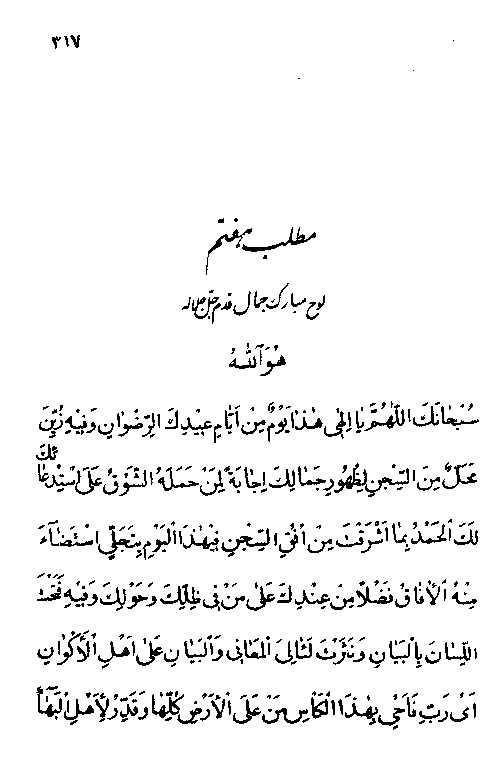 ٣١٧
مطلب هفتم
لوح مبارک جمال قدم جلّ جلاله
هُوَ ٱللّٰهُ
سُبْحَانَكَ اللّٰهُمَّ يَا اِلٰهِي هٰذَا يَوْمٌ مِنْ اَيَّامِ عِيدِكَ الرِّضْوَانِ وَفِيهِ زُيِّنَ
مَحَلٌّ مِنَ السِّجْنِ لِظُهُورِ جَمَالِكَ اِجَابَةً لِمَنْ حَمَلَهُ الشَّوْقُ عَلَى اسْتِدْعَائِكَ
لَكَ ٱلْحَمْدُ بِمَا اَشْرَقْتَ مِنْ اُفُقِ السِّجْنِ فِيهٰذَا ٱلْيَوْمِ بِتَجَلِّي اسْتَضَآءَ
مِنْهُ ٱلْاٰفَاقُ فَضْلًا مِنْ عِنْدِكَ عَلَى مَنْ فِي ظِلِّكَ وَحَوْلِكَ وَفِيهِ فَتَحْتَ
اللِّسَانَ بِالْبَيَانِ وَنَثَرْتَ لَئَالِئَ الْمَعَانِي وَٱلْبَيَانِ عَلَى اَهْلِ ٱلْاَكْوَانِ
اَيْ رَبِّ فَاَحْيِ بِهٰذَا ٱلْكَاْسِ مَنْ عَلَى ٱلْاَرْضِ كُلِّهَا وَقَدِّرْ لِاَهْلِ ٱلْبَهَآءِ